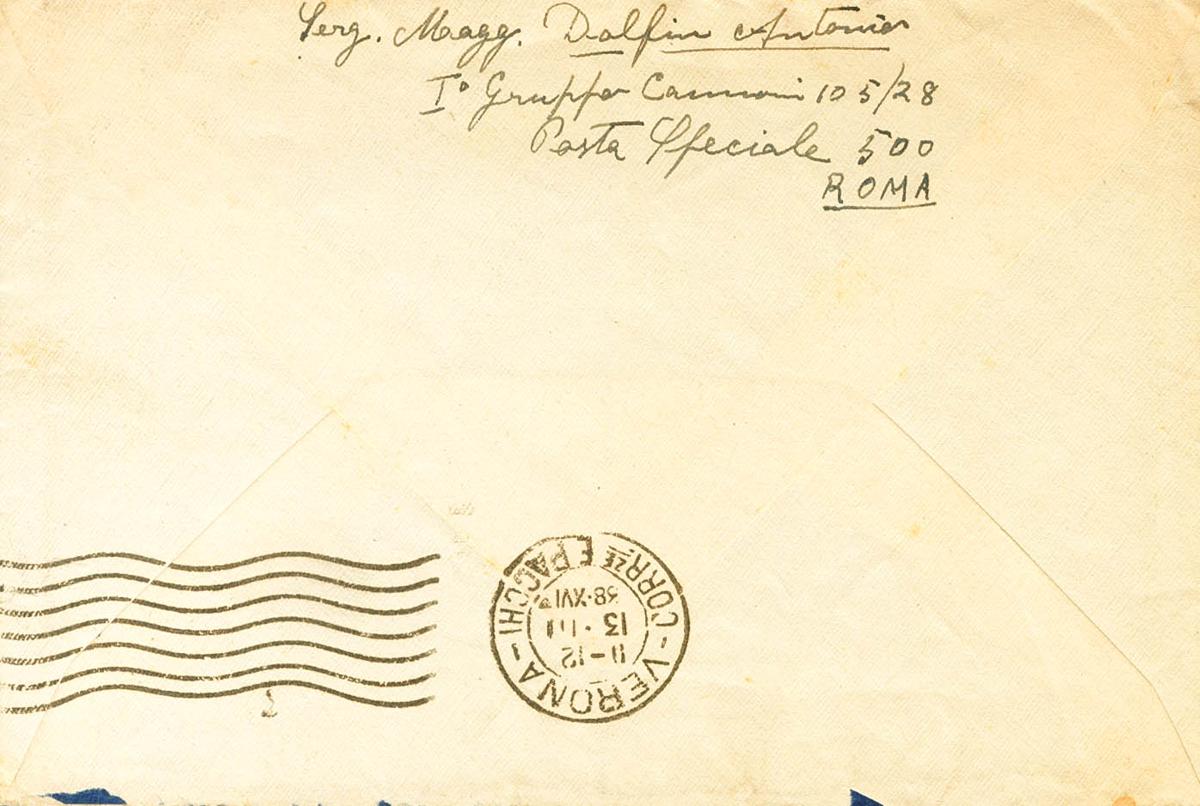 Serg. Magg. Dolfin Antonio
I° Gruppo Cannoni 105/28
Posta Speciale 500
ROMA
VERONA - CORR.ZE E PACCHI -
11-12
13·III
38·XVI